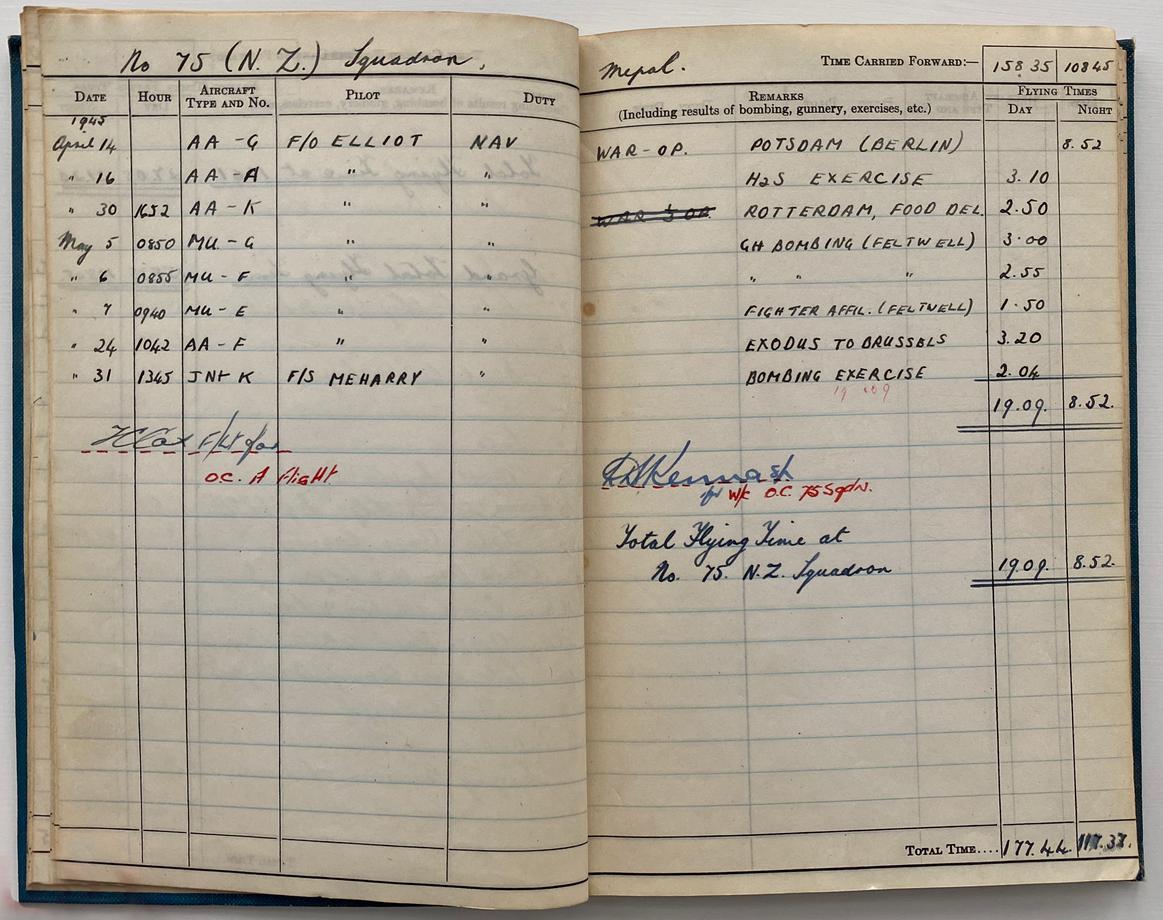 No 75 (N. Z.) Squadron.
DATE HOUR AIRCRAFT TYPE AND NO. PILOT DUTY
1945
April 14 AA - G F/O ELLIOT NAV
" 16 AA - A " "
" 30 1652 AA - K " "
May 5 0850 MU - G " "
" 6 0855 MU - F " "
" 7 0940 MU - E " "
" 24 1042 AA - F " "
" 31 1345 JN - K F/S MEHARRY "
F/Lt for
O.C. A flight
Mepal. TIME CARRIED FORWARD:— 158.35 108 45
REMARKS FLYING TIMES
(Including results of bombing, gunnery, exercises, etc.) DAY NIGHT
WAR - OP. POTSDAM (BERLIN) 8.52
H2S EXERCISE 3.10
ROTTERDAM, FOOD DEL. 2.50
GH BOMBING (FELTWELL) 3.00
" " " 2.55
FIGHTER AFFIL. (FELTWELL) 1.50
EXODUS TO BRUSSELS 3.20
BOMBING EXERCISE 2.04
19 09
19.09. 8.52.
for W/C O.C. 75 Sqdn.
Total Flying Time at
No. 75. N.Z. Squadron 19.09. 8.52.
TOTAL TIME.... 177.44. 117.37.